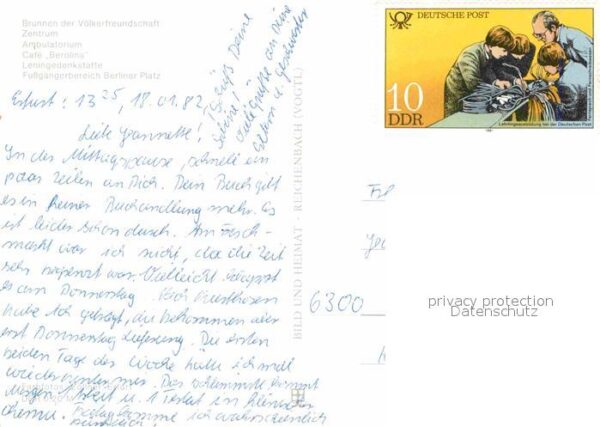 Brunnen der Völkerfreundschaft
Zentrum
Ambulatorium
Café „Berolina"
Leningedenkstätte
Fußgängerbereich Berliner Platz
Erfurt: 13 25, 18.01.82
Liebe Jeannette!
In der Mittagspause, schnell ein
paar Zeilen an Dich. Dein Buch gibt
es in keiner Buchhandlung mehr. Es
ist leider schon durch. Am Fisch-
markt war ich nicht, da die Zeit
sehr war. Vielleicht klappt
es am Donnerstag. Nach
habe ich gefragt, die bekommen aber
erst Donnerstag Lieferung. Die ersten
beiden Tage der Woche hätte ich mal
wieder hinter mir. Das Schlimmste kommt
Morgen 1 Arbeit u. 1 Testat in
Chemie. komme ich wahrscheinlich
Tschüß Deine
Grüße an Deine
Eltern u. Geschwister
BILD UND HEIMAT · REICHENBACH (VOGTL)
DEUTSCHE POST
10
DDR
Lehrlingsausbildung bei der Deutschen Post
6300
privacy protection
Datenschutz